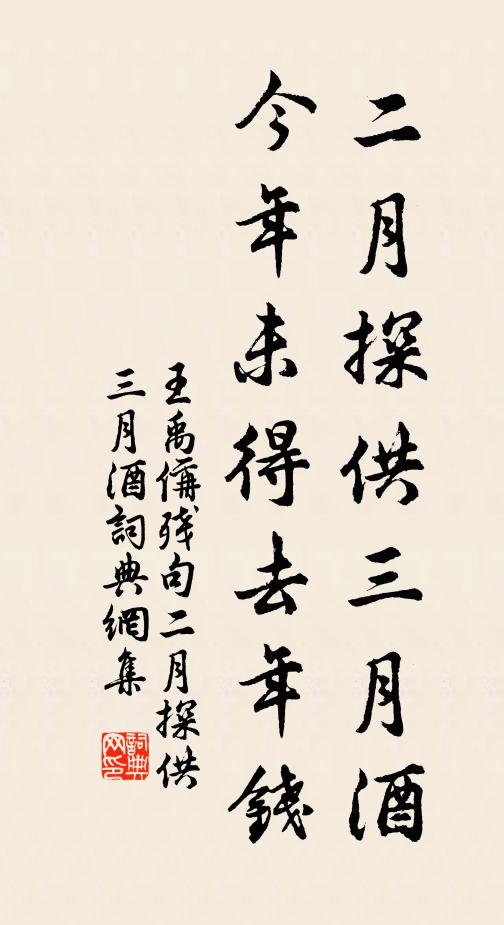 二月探供三月酒
今年未得去年錢
王禹偁残句二月探供
三月酒詞典網集
詞典
网印